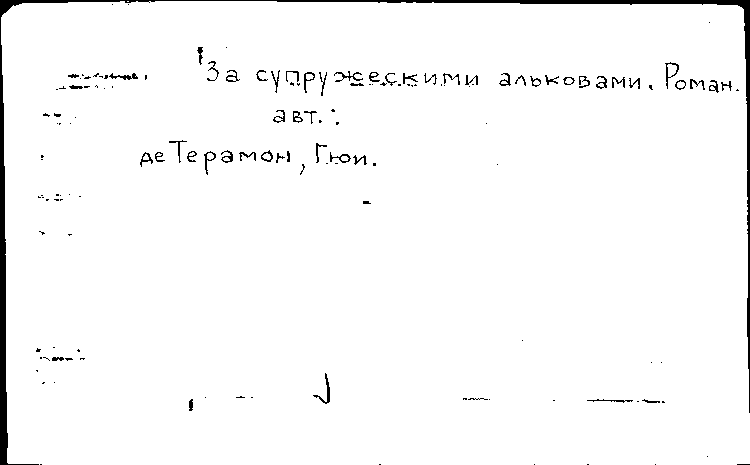 За супружескими альковами. Роман.
авт.:
де Терамон, Гюи.